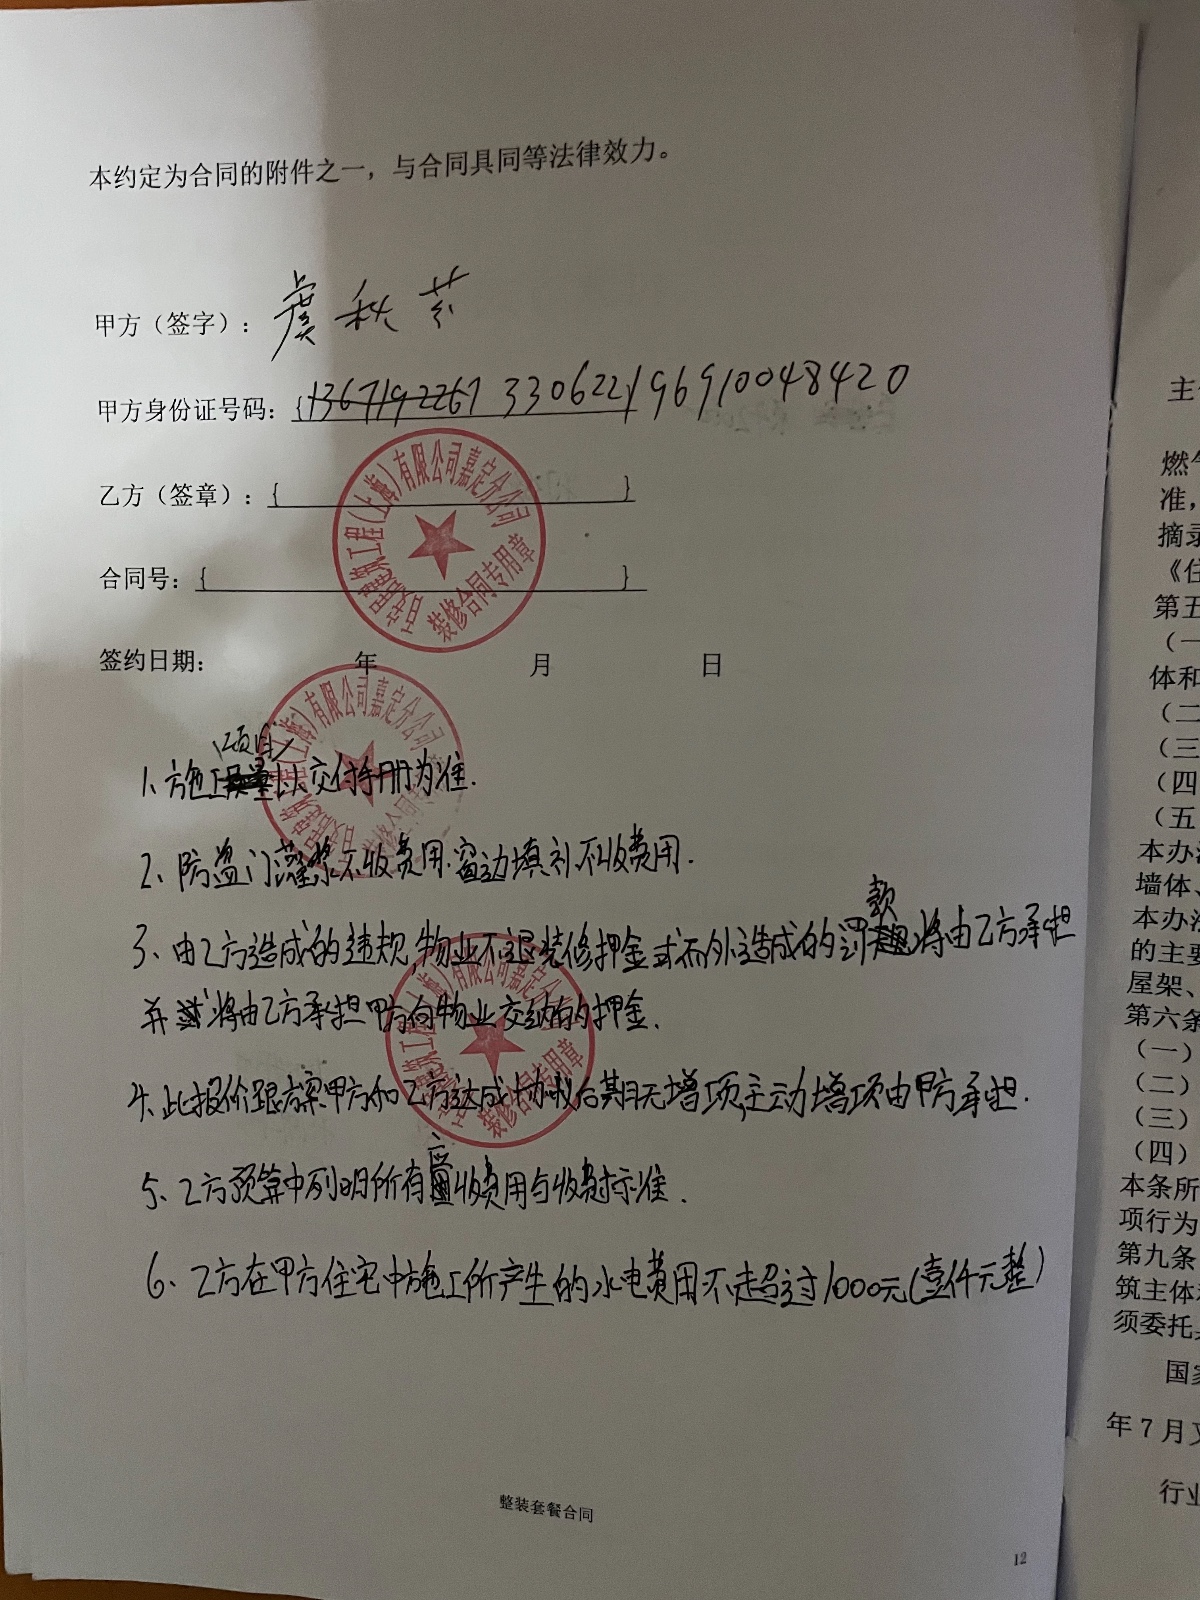 本约定为合同的附件之一，与合同具同等法律效力。
甲方（签字）：虞秋芬
甲方身份证号码：{13671922267 330622196910048420
乙方（签章）：{ }
合同号：{ }
签约日期： 年 月 日
百安居建筑工程(上海)有限公司嘉定分公司
装修合同专用章
百安居建筑工程(上海)有限公司嘉定分公司
装修合同专用章
(项目)
1、施工 以交付手册为准.
2、防盗门灌浆不收费用.窗边填补不收费用.
款
3、由乙方造成的违规,物业不退装修押金或而外造成的罚 将由乙方承担
并 将由乙方承担甲方向物业交纳的押金.
百安居建筑工程(上海)有限公司嘉定分公司
装修合同专用章
4、此报价跟方案甲方和乙方达成协议后期无增项,主动增项由甲方承担.
5、乙方预算中列明所有应收费用与收费标准.
6、乙方在甲方住宅中施工所产生的水电费用不超过1000元(壹仟元整)
整装套餐合同
12
主
燃气
准，
摘录
《住
第五
（一
体和
（二
（三
（四
（五
本办法
墙体、
本办法
的主要
屋架、
第六条
（一）
（二）
（三）
（四）
本条所
项行为
第九条
筑主体
须委托
国家
年7月
行业